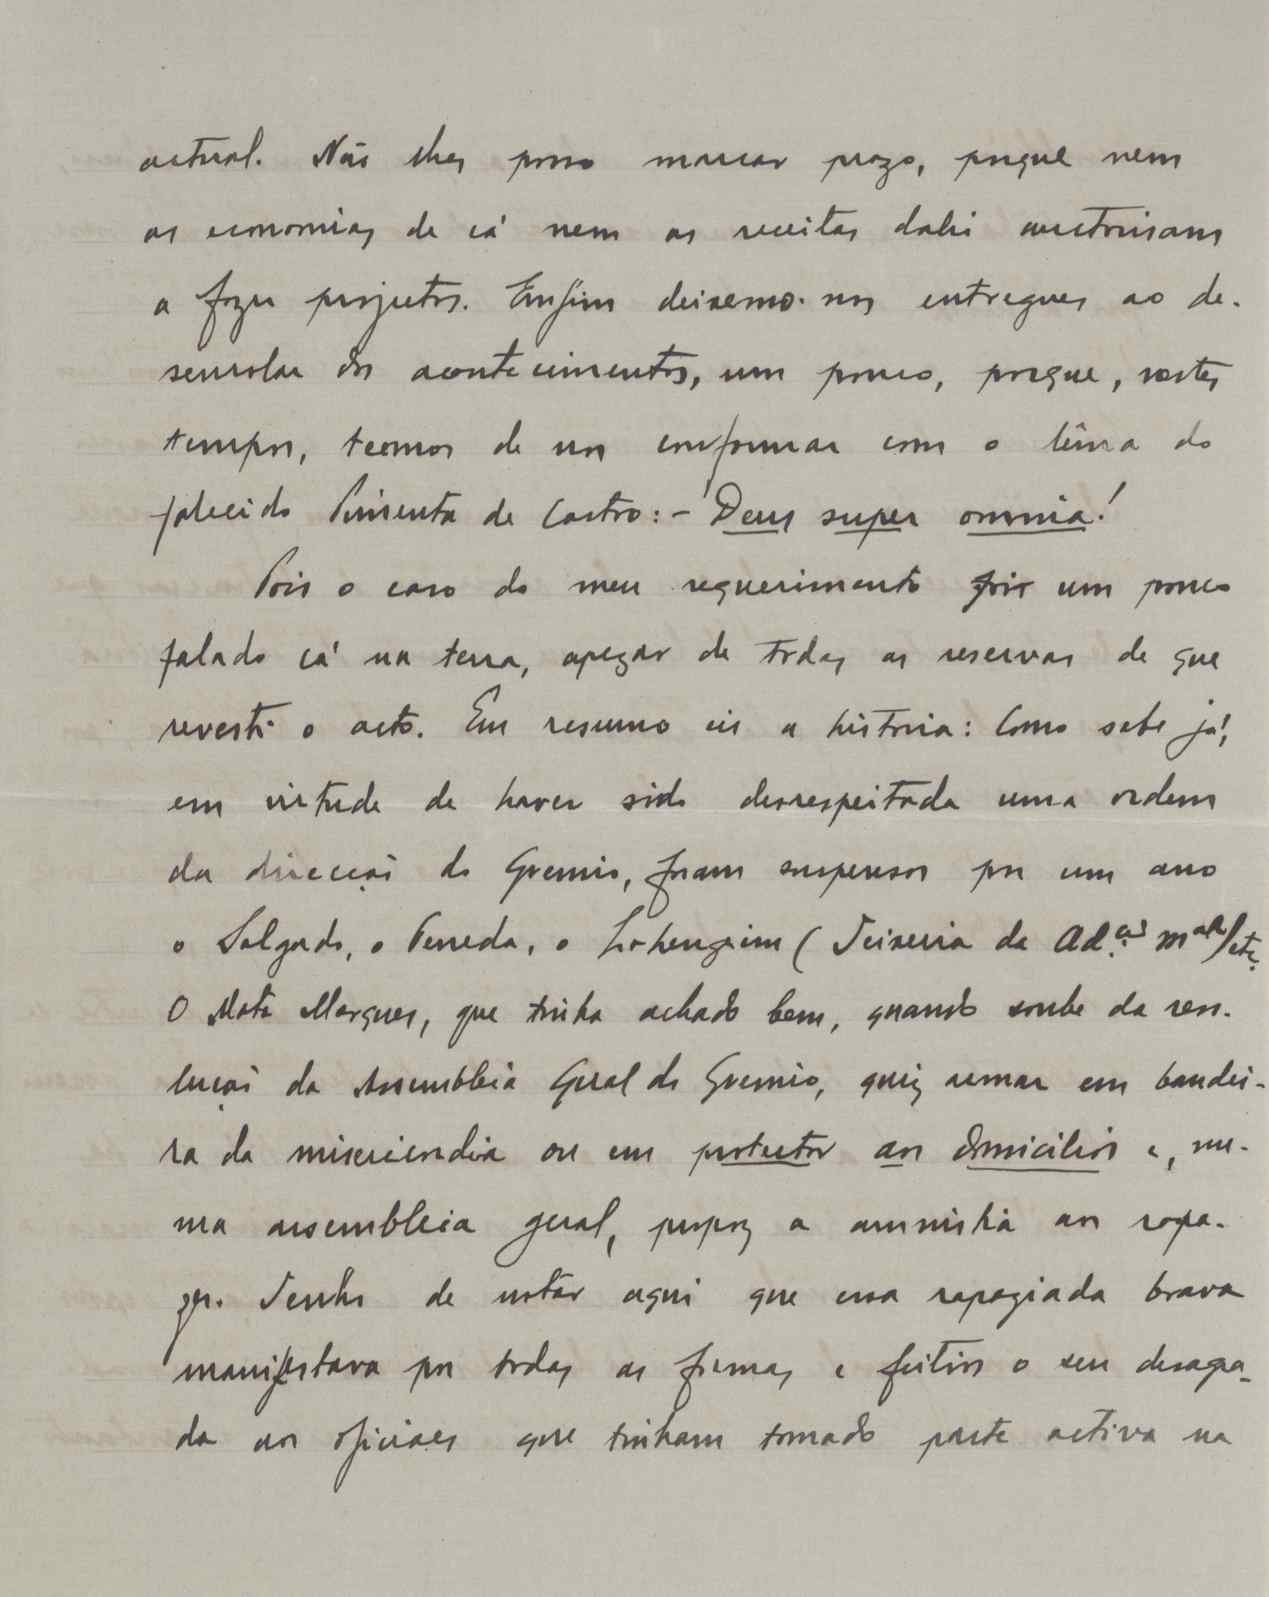 actual. Não lhes posso marcar prazo, porque nem
as economias de cá nem as receitas dahi auctorisam
a fazer projectos. Emfim deixemo-nos entregues ao de-
senrolar dos acontecimentos, um pouco, porque, nestes
tempos, teemos de nos conformar com o lêma do
falecido Pimenta de Castro: - Deus super omnia!
Pois o caso do meu requerimento foi um pouco
falado cá na terra, apezar de todas as reservas de que
revesti o acto. Em resumo eis a historia: Como sabe já,
em virtude de haver sido desrespeitada uma ordem
da direcção do Gremio, foram suspensos por um ano
o Salgado, o Peneda, o Lohengrim (Teixeira da Ad.ção mal) etc.
O Mata Marques, que tinha achado bem, quando soube da reso-
lução da Assembleia Geral do Gremio, quiz armar em bandei-
ra da misericordia ou em protector aos domicilios e, nu-
ma assembleia geral, propoz a amnistia aos rapa-
zes. Tenho de notar aqui que essa rapaziada brava
manifestava por todas as formas e feitios o seu desagra-
do aos oficiaes que tinham tomado parte activa na